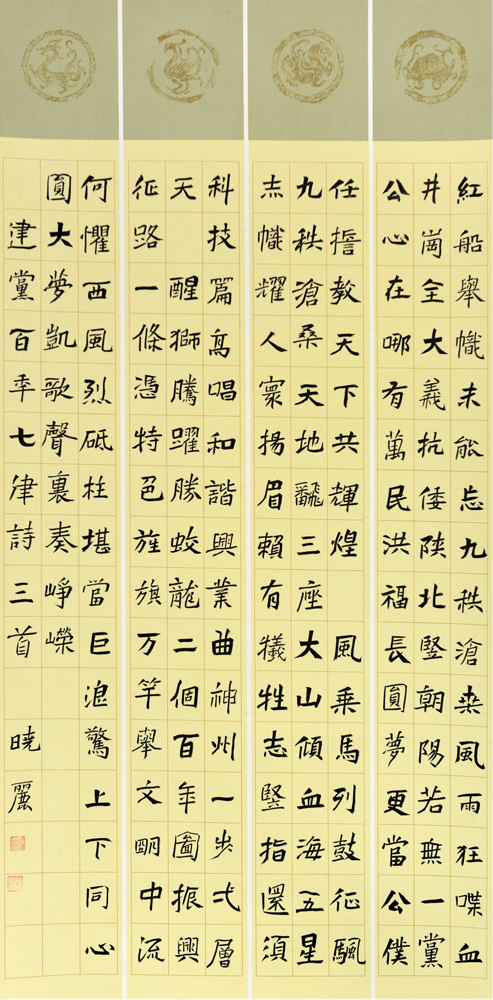 紅船舉幟未能忘九秩滄桒風雨狂喋血
井崗全大義抗倭陝北豎朝陽若無一黨
公心在哪有萬民洪福長圓夢更當公僕
任擔教天下共輝煌 風乘馬列鼓征颿
九秩滄桑天地飜三座大山傾血海五星
赤幟耀人寰揚眉賴有犧牲志豎指還須
科技篇高唱和諧興業曲神州一步弌層
天 醒獅騰躍勝蛟龍二個百年圖振興
征路一條憑特色旌旗万竿舉文明中流
何懼西風烈砥柱堪當巨浪驚上下同心
圓大夢凱歌聲裏奏崢嶸
建黨百年七律詩三首 曉麗